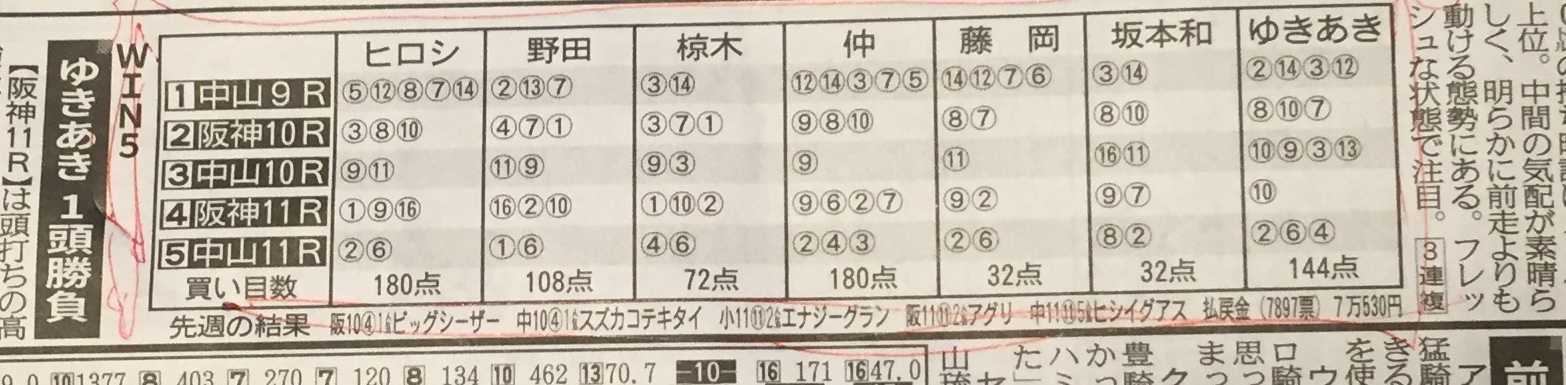 上位。中間の気配が素晴ら
しく、明らかに前走よりも
動ける態勢にある。フレッ
シュな状態で注目。3連複
WIN5
ゆきあき1頭勝負
【阪神11R】は頭打ちの高
ヒロシ 野田 椋木 仲 藤岡 坂本和 ゆきあき
1中山9R ⑤⑫⑧⑦⑭ ②⑬⑦ ③⑭ ⑫⑭③⑦⑤ ⑭⑫⑦⑥ ③⑭ ②⑭③⑫
2阪神10R ③⑧⑩ ④⑦① ③⑦① ⑨⑧⑩ ⑧⑦ ⑧⑩ ⑧⑩⑦
3中山10R ⑨⑪ ⑪⑨ ⑨③ ⑨ ⑪ ⑯⑪ ⑩⑨③⑬
4阪神11R ①⑨⑯ ⑯②⑩ ①⑩② ⑨⑥②⑦ ⑨② ⑨⑦ ⑩
5中山11R ②⑥ ①⑥ ④⑥ ②④③ ②⑥ ⑧② ②⑥④
買い目数 180点 108点 72点 180点 32点 32点 144点
先週の結果 阪10④1人ビッグシーザー 中10④1人スズカコテキタイ 小11⑪2人エナジーグラン 阪11⑪2人アグリ 中11⑪5人ヒシイグアス 払戻金(7897票) 7万530円
10 1377 8 403 7 270 7 120 8 134 10 462 13 70.7 10 16 171 16 47.0